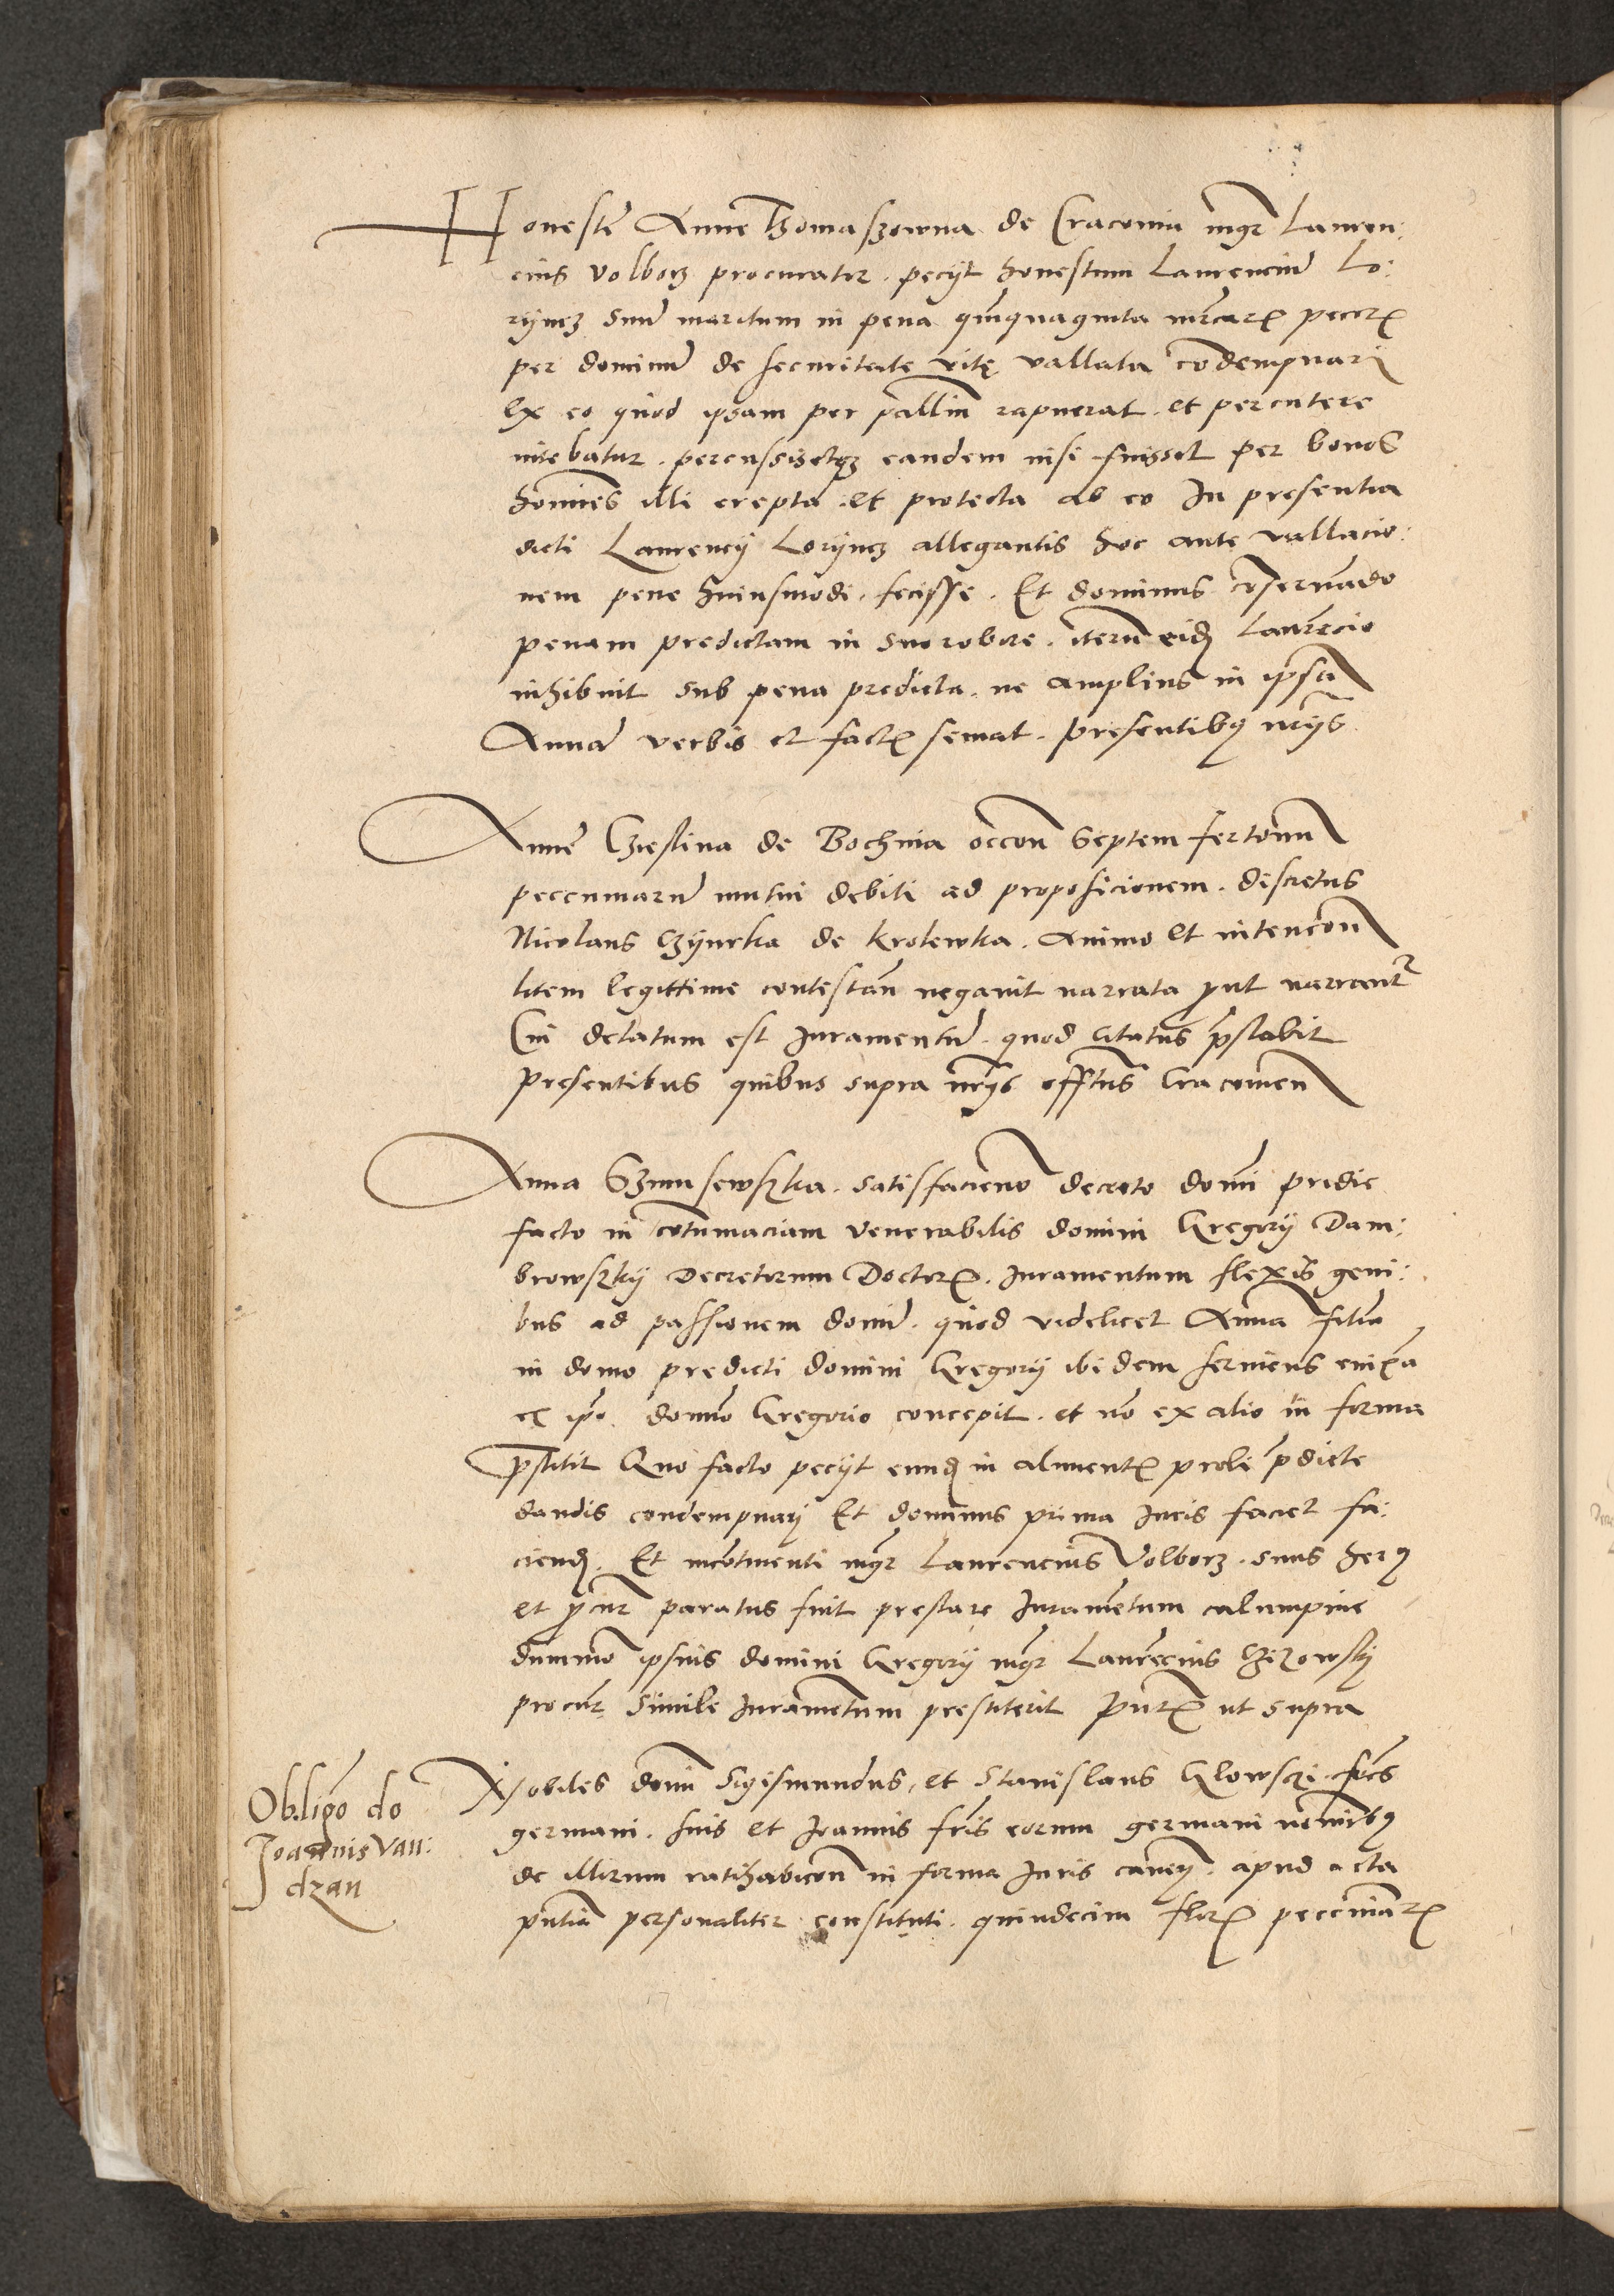 Honeste Anne Thomaszowna de Cracovia mgr Lauren:
cius Volborz procurator . peciit honestum Laurenciũ Lo:
ryncz suũ maritum in pena quinquaginta mrcarꝝ peccꝝ
per dominũ de securitate vitę vallata cõdempnari
Ex eo quod ipsam per palliũ rapuerat . et percutere
nitebatur . percussissetqz eandem nisi fuisset per bonos
homines illi erepta et protecta ab eo In presentia
dicti Laurencij Loryncz allegantis hoc ante vallacio:
nem pene huiusmodi . fecisse . Et dominus cõservãdo
penam predictam in suo robore . iterũ eidẽ Laurẽcio
inhibuit sub pena predicta . ne amplius in ipsã
Annã verbis et factꝭ seviat . presentibus nrijs
Anne Cziestina de Bochnia occõn septem fertonũ
peccuniarũ mutui debiti ad proposicionem . discretus
Nicolaus Czynrka de Krolewka . Animo et intencõn
litem legittime contestãn negavit narrata prout narrantr
Cui delatum est Juramentũ . quod citatus prestabit
Presentibus quibus supra nrijs offitus Cracovien
Anna Szamsewszka . satisfaciendo decreto domi pridie
facto in cõtumaciam venerabilis domini Gregorij Dam:
browszkij Decretorum Doctorꝭ . Juramentum flexis geni:
bus ad passionem domini . quod videlicet Anna filia
in domo predicti domini Gregorij ibidem serviens enixa
ex ipso domino Gregorio concepit . et non ex alio in forma
prestitit Quo facto peciit eundẽ in alimentꝭ proli predicte
dandis condempnari Et dominus prima Juris faciet fa:
ciendẽ . Et incõtinenti mgr Laurencius Volborz . suus
et procur paratus fuit prestare Juramẽtum calumpnie
dummõ ipsius domini Gregorij mgr Laurẽcius Czezowskij
procur simile Juramẽtum prestiterit Pntꝭ ut supra
Obligõ do
Joannis Van:
dzan
Nobiles domi Sigismundus . et Stanislaus Glowsczi frẽs
germani . suis et Joannis fris eorum germani nominibus
de illorum ratihabicõn in forma Juris cavẽn . apud acta
pntia personaliter constituti . quindecim florꝭ peccuniarꝭ